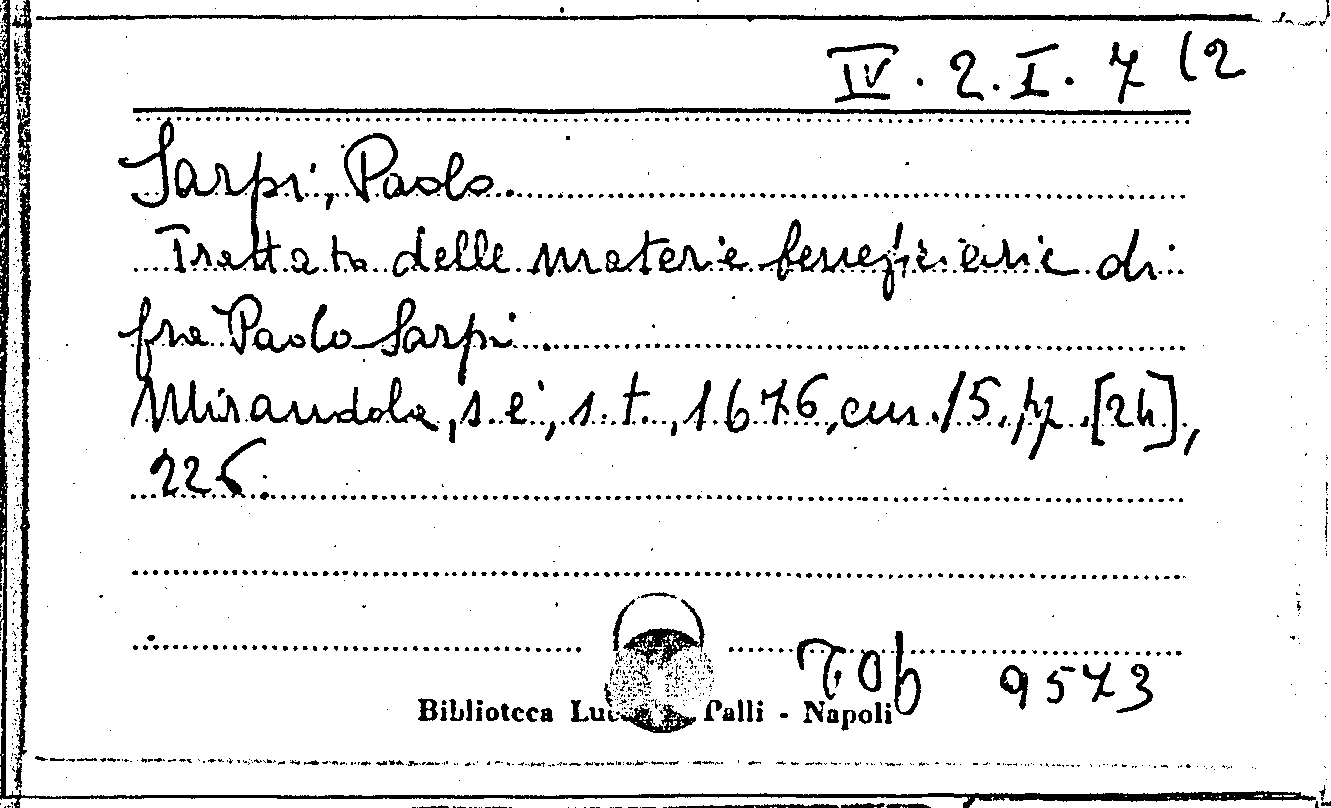 IV. 2. I. 7 (2
Sarpi, Paolo.
Trattato delle materie beneficiarie di
fra Paolo Sarpi.
Mirandola, s. e., s. t., 1676, cm. 15, pp. [24],
226.
TOb 9573
Biblioteca Palli - Napoli